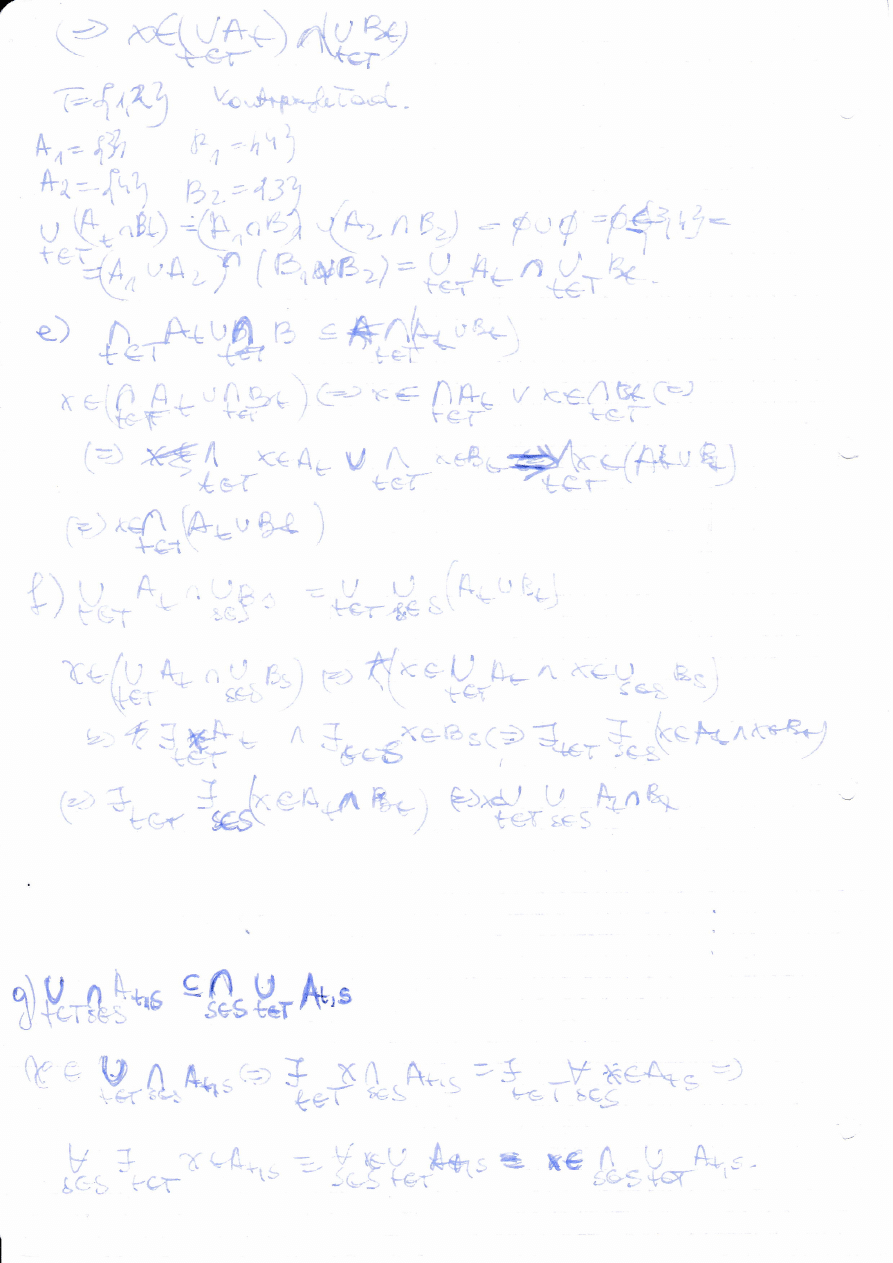 (=> x∈(∪_{t∈T} A_t) ∩ (∪_{t∈T} B_t)
T={1,2}
A_1={3} B_1={4}
A_2={4} B_2={3}
∪_{t∈T} (A_t ∩ B_t) = (A_1 ∩ B_1) ∪ (A_2 ∩ B_2) = ∅ ∪ ∅ = ∅ ⊆ {3,4} =
= (A_1 ∪ A_2) ∩ (B_1 ∪ B_2) = ∪_{t∈T} A_t ∩ ∪_{t∈T} B_t.
e) ∩_{t∈T} A_t ∪ ∩_{t∈T} B ⊆ ∩_{t∈T} (A_t ∪ B_t)
x∈(∩_{t∈T} A_t ∪ ∩_{t∈T} B_t) (=> x∈ ∩_{t∈T} A_t ∨ x∈ ∩_{t∈T} B_t (=)
(=> ∧_{t∈T} x∈A_t ∪ ∧_{t∈T} x∈B_t => ∧_{t∈T} x∈(A_t ∪ B_t)
(=) x∈ ∩_{t∈T} (A_t ∪ B_t)
f) ∪_{t∈T} A_t ∩ ∪_{s∈S} B_s = ∪_{t∈T} ∪_{s∈S} (A_t ∪ B_t)
x∈(∪_{t∈T} A_t ∩ ∪_{s∈S} B_s) (=> (x∈ ∪_{t∈T} A_t ∧ x∈ ∪_{s∈S} B_s)
∃_{t∈T} x∈A_t ∧ ∃_{s∈S} x∈B_s (=> ∃_{t∈T} ∃_{s∈S} (x∈A_t ∧ x∈B_t)
(=> ∃_{t∈T} ∃_{s∈S} (x∈A_t ∩ B_t) (=> x∈ ∪_{t∈T} ∪_{s∈S} A_t ∩ B_t
g) ∪_{t∈T} ∩_{s∈S} A_{t,s} ⊆ ∩_{s∈S} ∪_{t∈T} A_{t,s}
x∈ ∪_{t∈T} ∩_{s∈S} A_{t,s} (=> ∃_{t∈T} x ∩_{s∈S} A_{t,s} = ∃_{t∈T} ∀_{s∈S} x∈A_{t,s} =>
∀_{s∈S} ∃_{t∈T} x∈A_{t,s} = ∀_{s∈S} x∈ ∪_{t∈T} A_{t,s} = x∈ ∩_{s∈S} ∪_{t∈T} A_{t,s}.